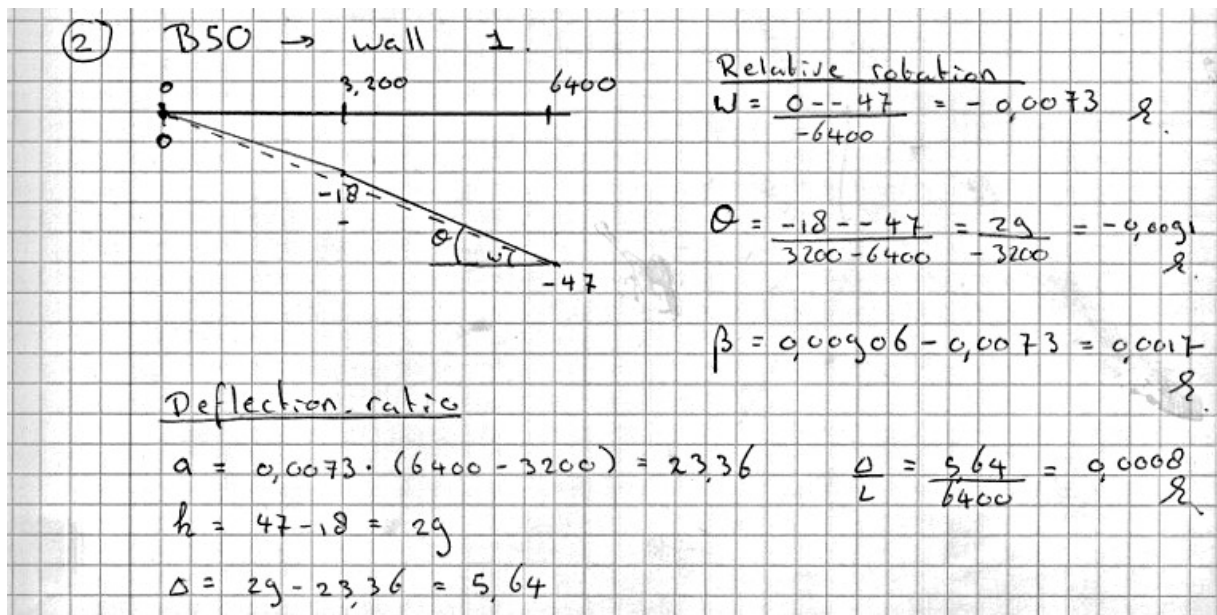 ② B50 → Wall 1.
0 3,200 6400
0
-18
-47
θ ω
Relative rotation
ω = 0 - - 47 / -6400 = - 0,0073
θ = -18 - - 47 / 3200 - 6400 = 29 / - 3200 = - 0,0091
β = 0,00906 - 0,0073 = 0,0017
Deflection ratio
a = 0,0073 · (6400 - 3200) = 23,36
h = 47 - 18 = 29
Δ = 29 - 23,36 = 5,64
Δ / L = 5,64 / 6400 = 0,0008